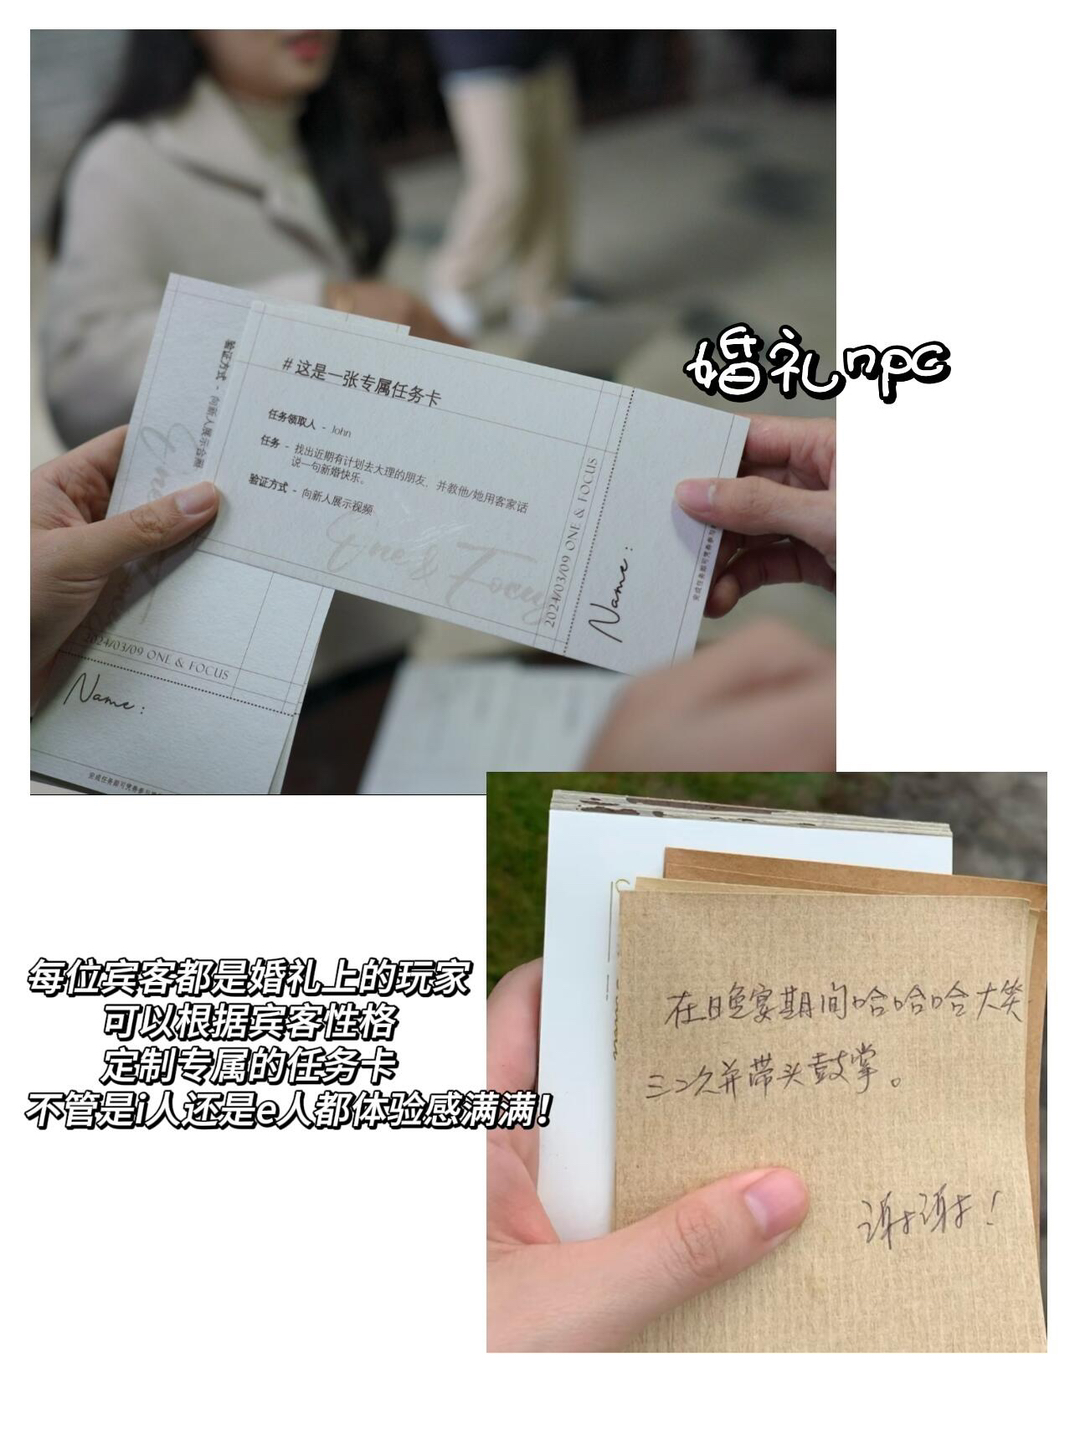 婚礼npc
#这是一张专属任务卡
任务领取人 - John
任务 - 找出近期有计划去大理的朋友，并教他/她用客家话
说一句新婚快乐。
验证方式 - 向新人展示视频
One & Focus
2024/03/09 ONE & FOCUS
Name:
验证方式 - 向新人展示合照
2024/03/09 ONE & FOCUS
Name:
每位宾客都是婚礼上的玩家
可以根据宾客性格
定制专属的任务卡
不管是i人还是e人都体验感满满！
在晚宴期间哈哈哈大笑
三次并带头鼓掌。
谢谢！